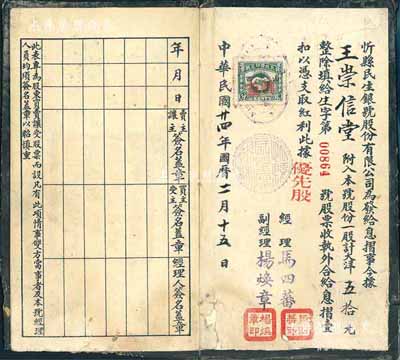 忻縣民生銀號股份有限公司為發給息摺事今據
王崇信堂 附入本號股份一股計大洋 五拾 元
整除填給生字第 00864 號股票收執外合給息摺壹
扣以憑支取紅利此據
優先股
經理 馬四蕃
副經理 楊煥章
中華民國廿四年國曆二月十五日
年 月 日
賣主讓主簽名蓋章
買主受主簽名蓋章
經理人簽名蓋章
此表專為股東買賣讓受股票而設凡有此項情事雙方當事者及本號經理
人員均項簽名蓋章以昭慎重